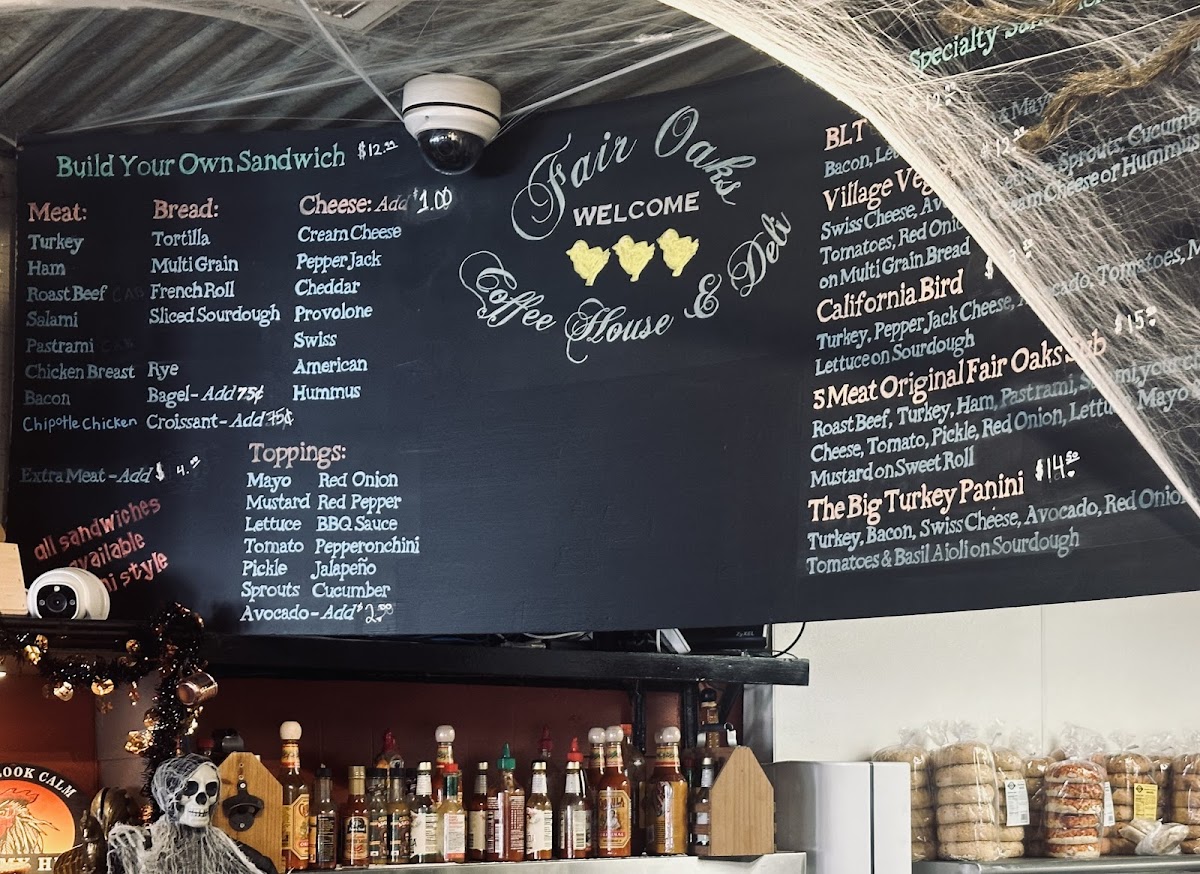 Build Your Own Sandwich $12.00
Meat:
Turkey
Ham
Roast Beef
Salami
Pastrami
Chicken Breast
Bacon
Chipotle Chicken
Extra Meat - Add $4.00
all sandwiches
available
style
Bread:
Tortilla
Multi Grain
French Roll
Sliced Sourdough
Rye
Bagel - Add 75¢
Croissant - Add 75¢
Cheese: Add $1.00
Cream Cheese
Pepper Jack
Cheddar
Provolone
Swiss
American
Hummus
Toppings:
Mayo Red Onion
Mustard Red Pepper
Lettuce BBQ Sauce
Tomato Pepperonchini
Pickle Jalapeño
Sprouts Cucumber
Avocado - Add $2.00
Fair Oaks
WELCOME
Coffee House & Deli
Specialty
BLT
Bacon,
Village
Swiss Cheese, Sprouts, Cucumber
Tomatoes, Red Onion Cream Cheese or Hummus
on Multi Grain Bread
California Bird
Turkey, Pepper Jack Cheese, Tomatoes,
Lettuce on Sourdough
5 Meat Original Fair Oaks Sub $15
Roast Beef, Turkey, Ham, Pastrami, Salami, your
Cheese, Tomato, Pickle, Red Onion, Lettuce, Mayo
Mustard on Sweet Roll
The Big Turkey Panini $14.50
Turkey, Bacon, Swiss Cheese, Avocado, Red Onion
Tomatoes & Basil Aioli on Sourdough
ZyXEL
LOOK CALM
MY